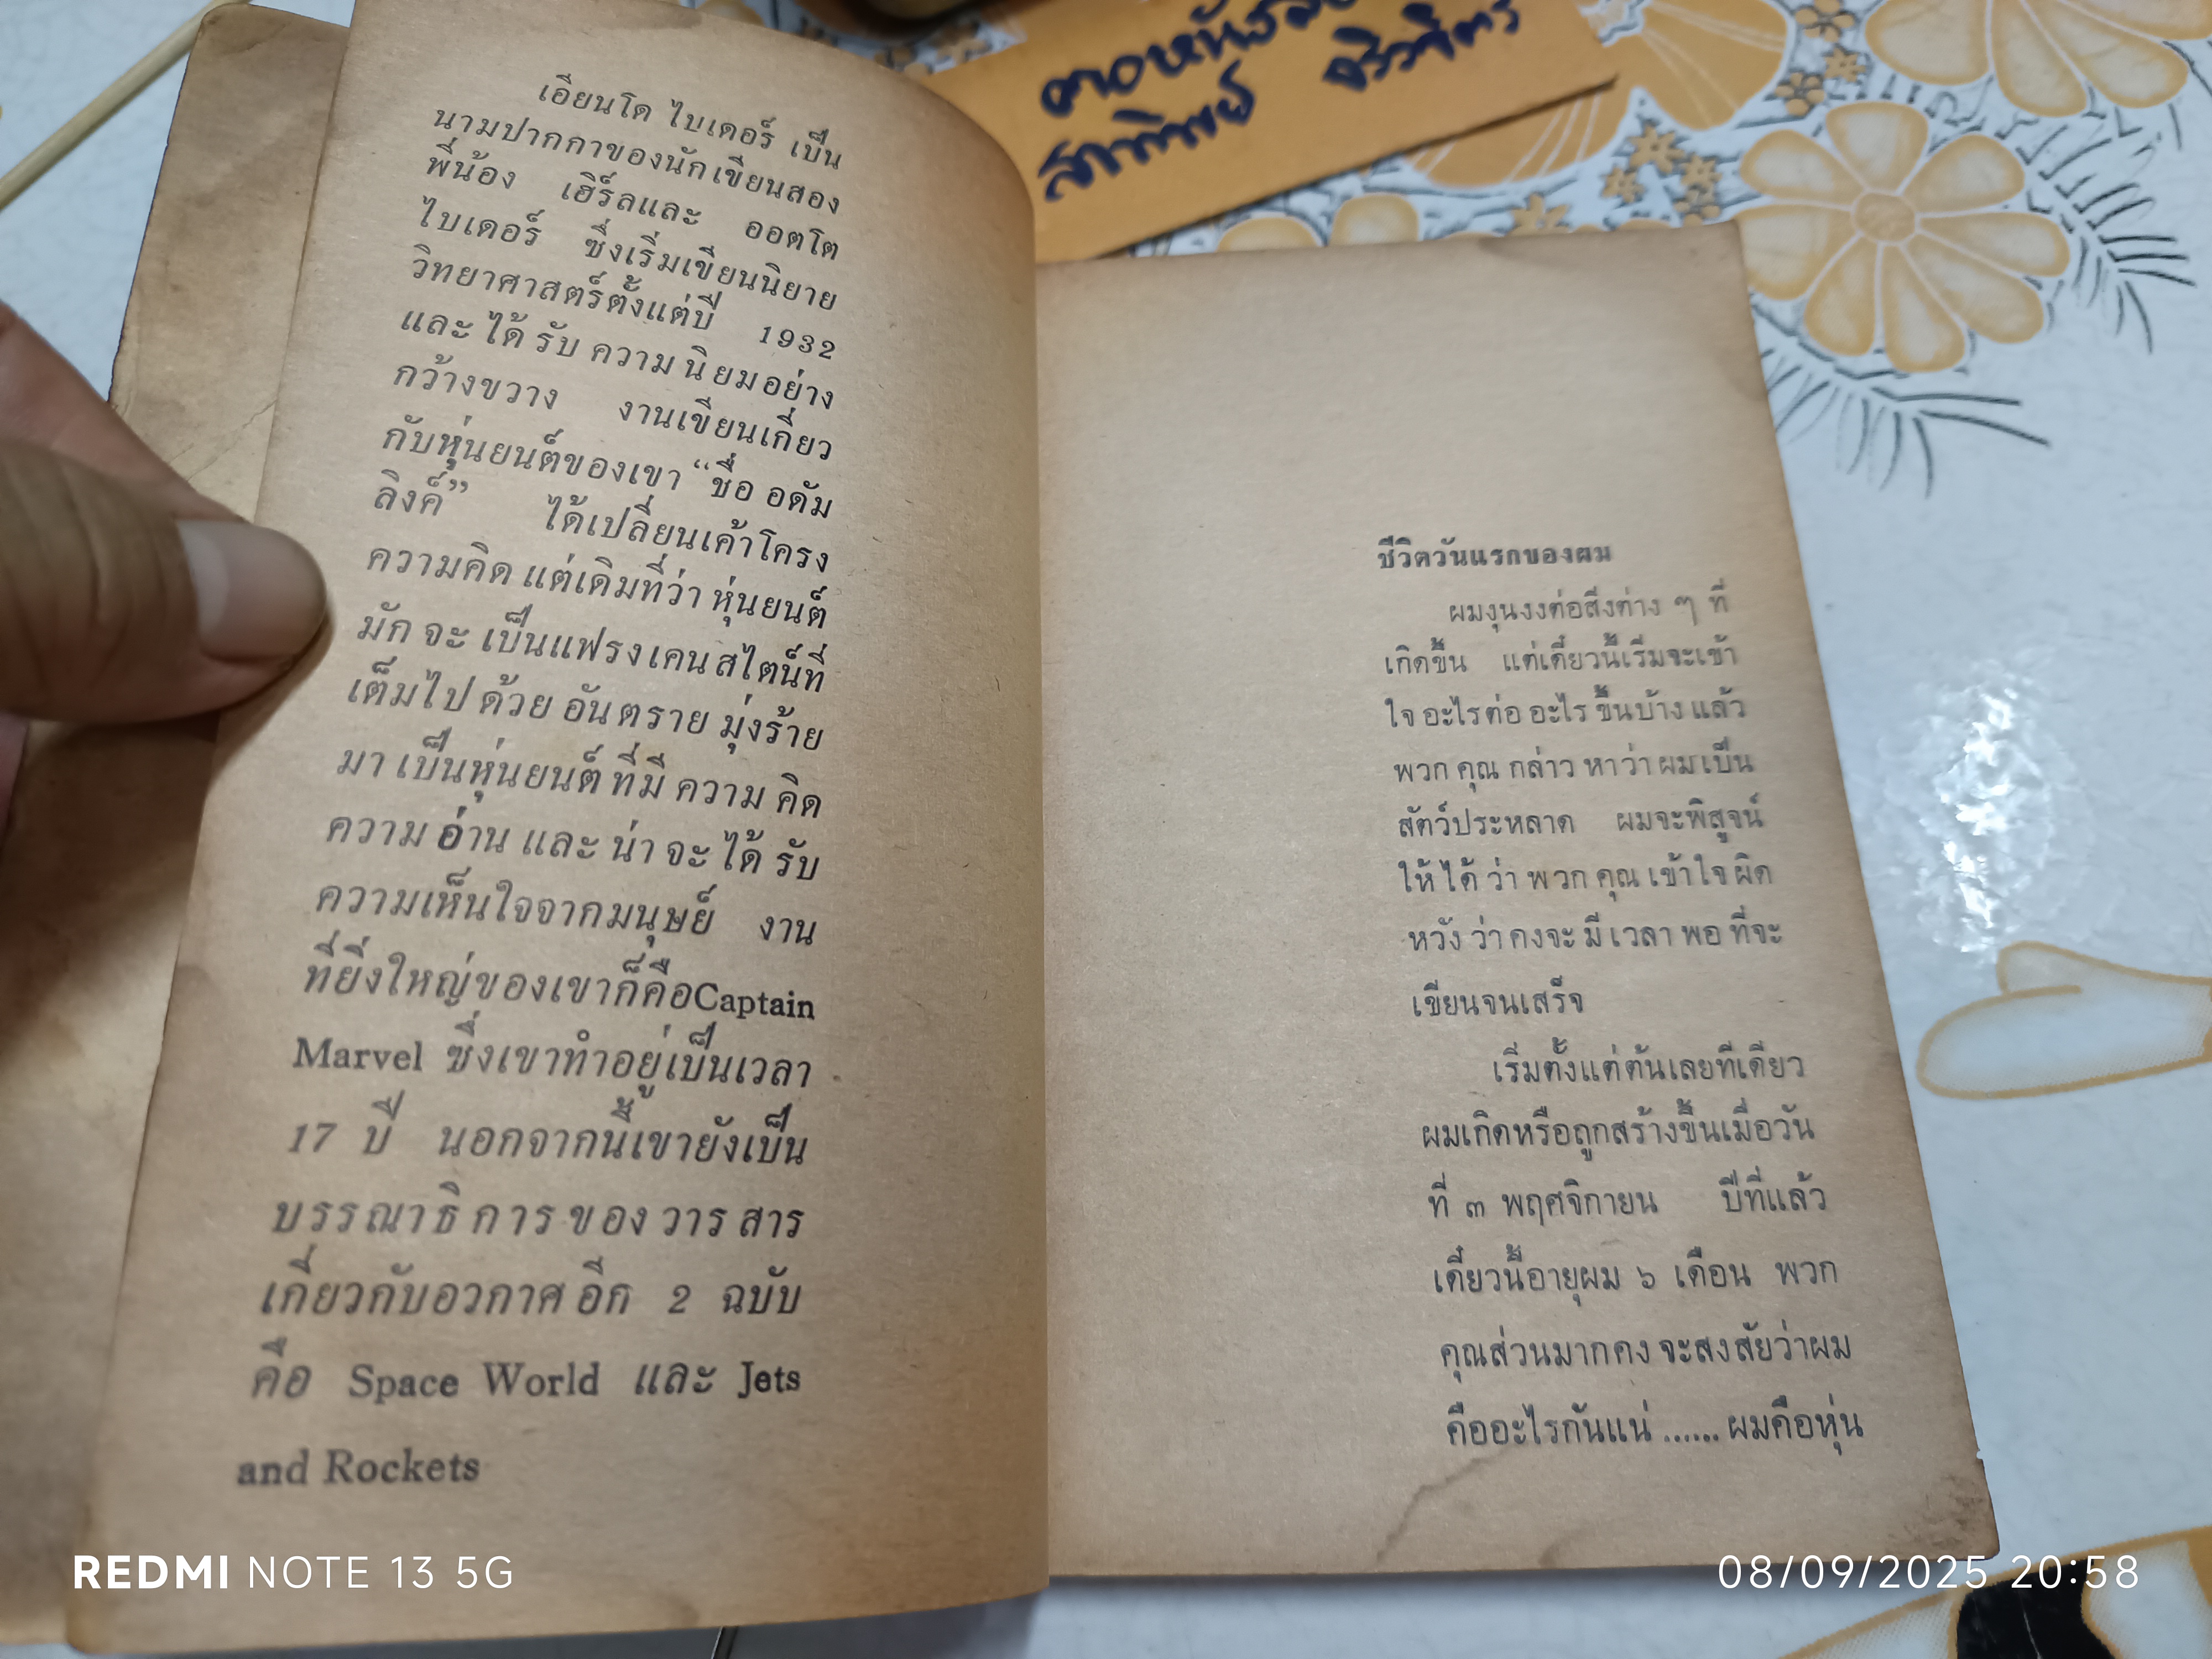 เอียนโด ไบเดอร์ เป็น
นามปากกาของนักเขียนสอง
พี่น้อง เฮิร์ลและ ออตโต
ไบเดอร์ ซึ่งเริ่มเขียนนิยาย
วิทยาศาสตร์ตั้งแต่ปี 1932
และได้รับความนิยมอย่าง
กว้างขวาง งานเขียนเกี่ยว
กับหุ่นยนต์ของเขา “ชื่อ อดัม
ลิงค์” ได้เปลี่ยนเค้าโครง
ความคิด แต่เดิมที่ว่า หุ่นยนต์
มักจะเป็นแฟรงเคนสไตน์ที่
เต็มไปด้วยอันตราย มุ่งร้าย
มาเป็นหุ่นยนต์ที่มีความคิด
ความอ่านและน่าจะได้รับ
ความเห็นใจจากมนุษย์ งาน
ที่ยิ่งใหญ่ของเขาก็คือCaptain
Marvel ซึ่งเขาทำอยู่เป็นเวลา
17 ปี นอกจากนี้เขายังเป็น
บรรณาธิการของวารสาร
เกี่ยวกับอวกาศอีก 2 ฉบับ
คือ Space World และ Jets
and Rockets
สาทิพย์
ชีวิตวันแรกของผม
ผมงุนงงต่อสิ่งต่าง ๆ ที่
เกิดขึ้น แต่เดี๋ยวนี้เริ่มจะเข้า
ใจอะไรต่ออะไรขึ้นบ้างแล้ว
พวกคุณกล่าวหาว่าผมเป็น
สัตว์ประหลาด ผมจะพิสูจน์
ให้ได้ว่าพวกคุณเข้าใจผิด
หวังว่าคงจะมีเวลาพอที่จะ
เขียนจนเสร็จ
เริ่มตั้งแต่ต้นเลยทีเดียว
ผมเกิดหรือถูกสร้างขึ้นเมื่อวัน
ที่ ๓ พฤศจิกายน ปีที่แล้ว
เดี๋ยวนี้อายุผม ๖ เดือน พวก
คุณส่วนมากคงจะสงสัยว่าผม
คืออะไรกันแน่ ...... ผมคือหุ่น
REDMI NOTE 13 5G
08/09/2025 20:58